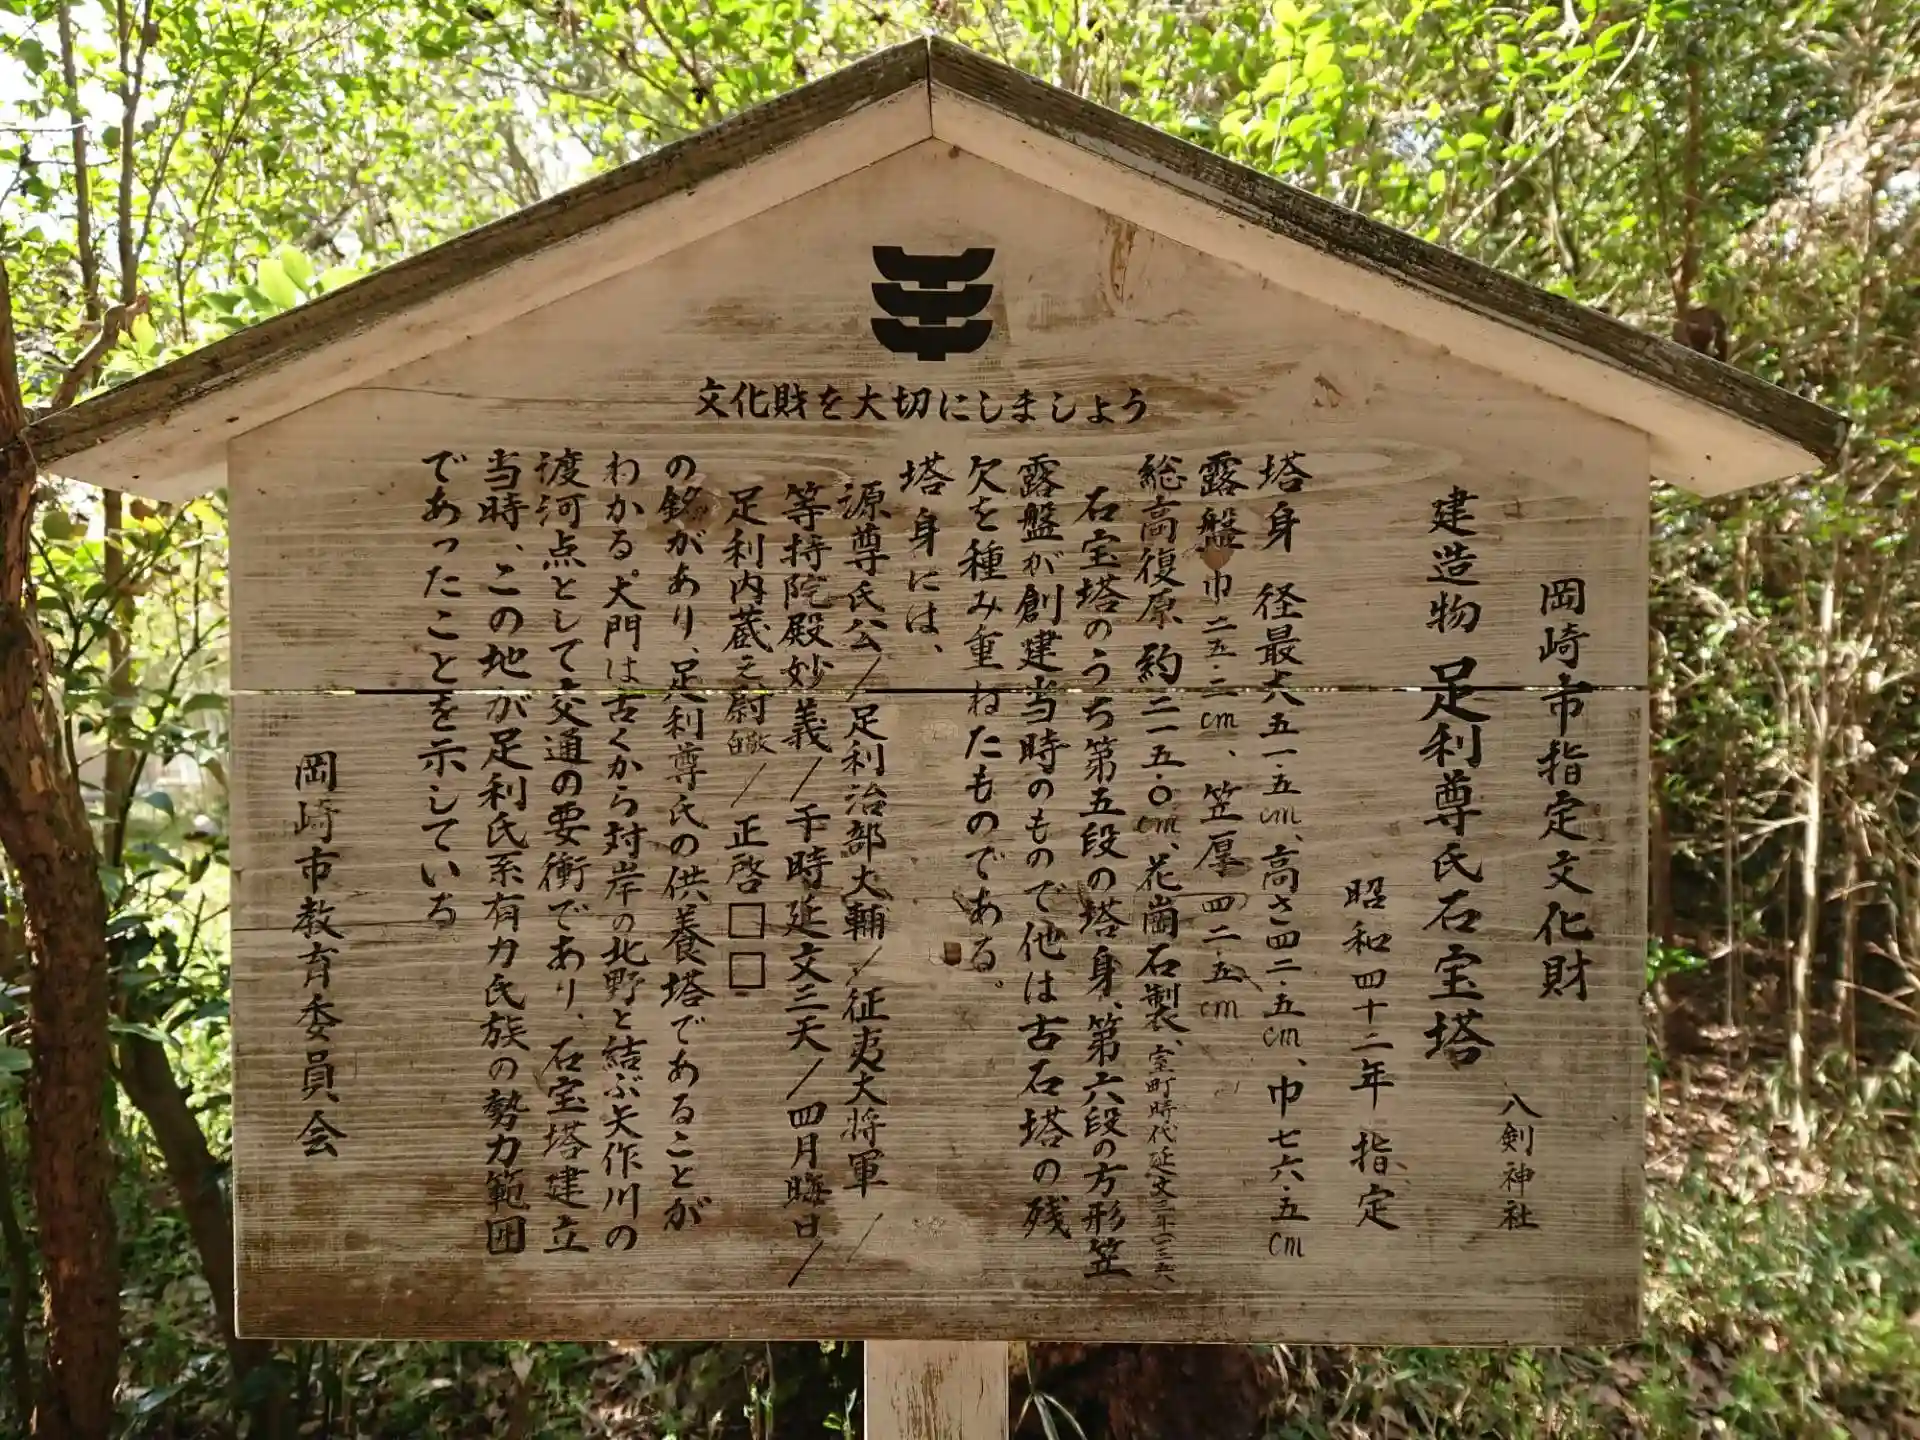 文化財を大切にしましょう
岡崎市指定文化財
八剣神社
建造物 足利尊氏石宝塔
昭和四十二年 指定
塔身 径最大五一・五cm、高さ四二・五cm、巾七六・五cm
露盤 巾二五・二cm、笠厚四二・五cm
総高復原 約二一五・〇cm、花崗石製、室町時代延文三年(一三五八)
石宝塔のうち第五段の塔身、第六段の方形笠
露盤が創建当時のもので他は古石塔の残
欠を種み重ねたものである。
塔身には、
源尊氏公/足利治部大輔/征夷大将軍/
等持院殿妙義/于時延文三天/四月晦日/
足利内蔵之尉敬白/正啓□□
の銘があり、足利尊氏の供養塔であることが
わかる。大門は古くから対岸の北野と結ぶ矢作川の
渡河点として交通の要衝であり、石宝塔建立
当時、この地が足利氏系有力氏族の勢力範囲
であったことを示している
岡崎市教育委員会